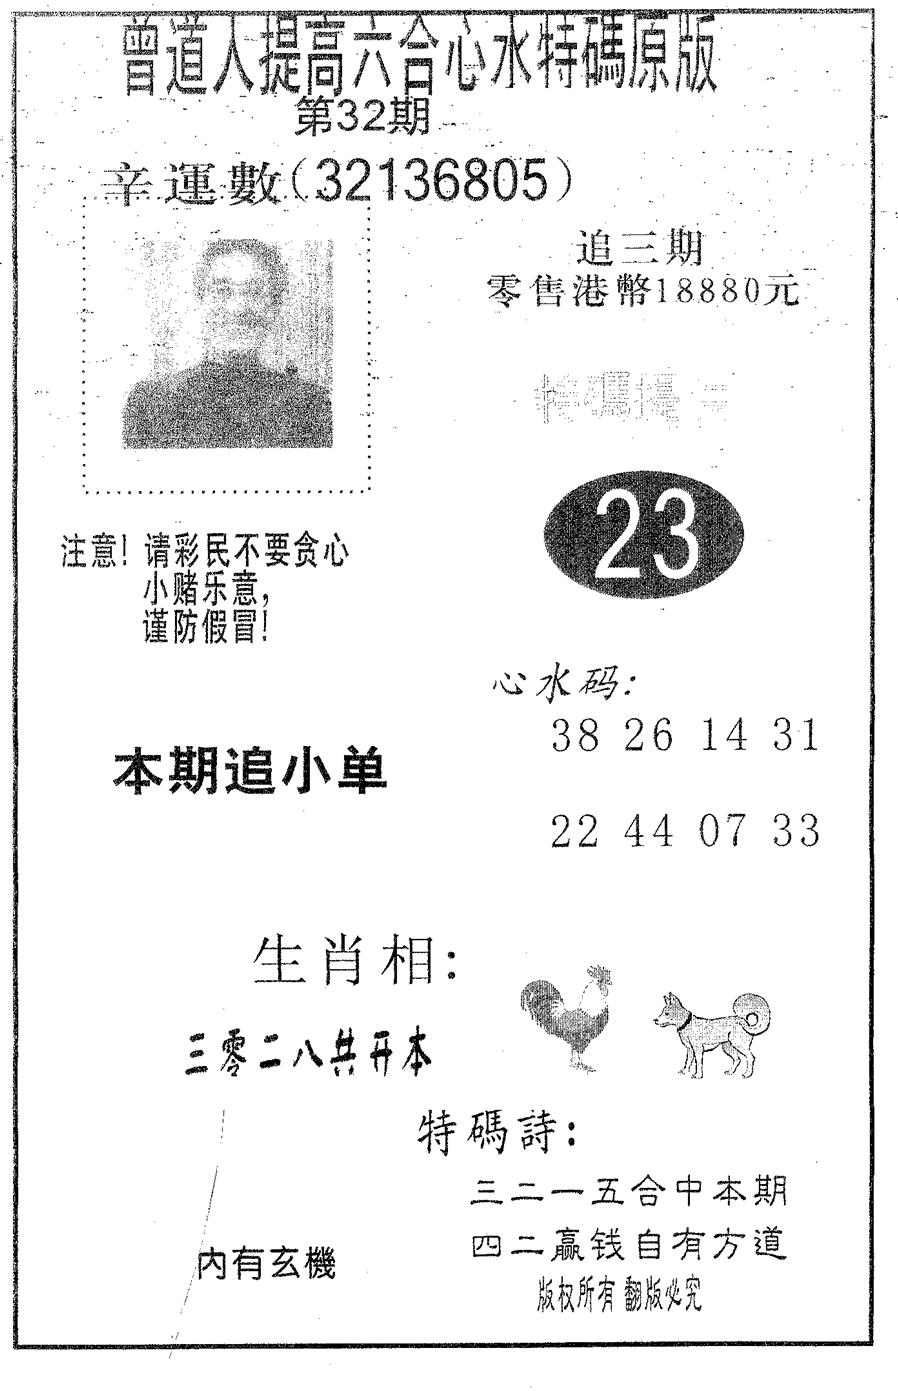 曾道人提高六合心水特碼原版
第32期
辛運數(32136805)
追三期
零售港幣18880元
特碼提示
23
注意! 请彩民不要贪心
小赌乐意,
谨防假冒!
心水码:
38 26 14 31
本期追小单
22 44 07 33
生肖相:
三零二八共开本
特碼詩:
三二一五合中本期
四二赢钱自有方道
内有玄機
版权所有 翻版必究